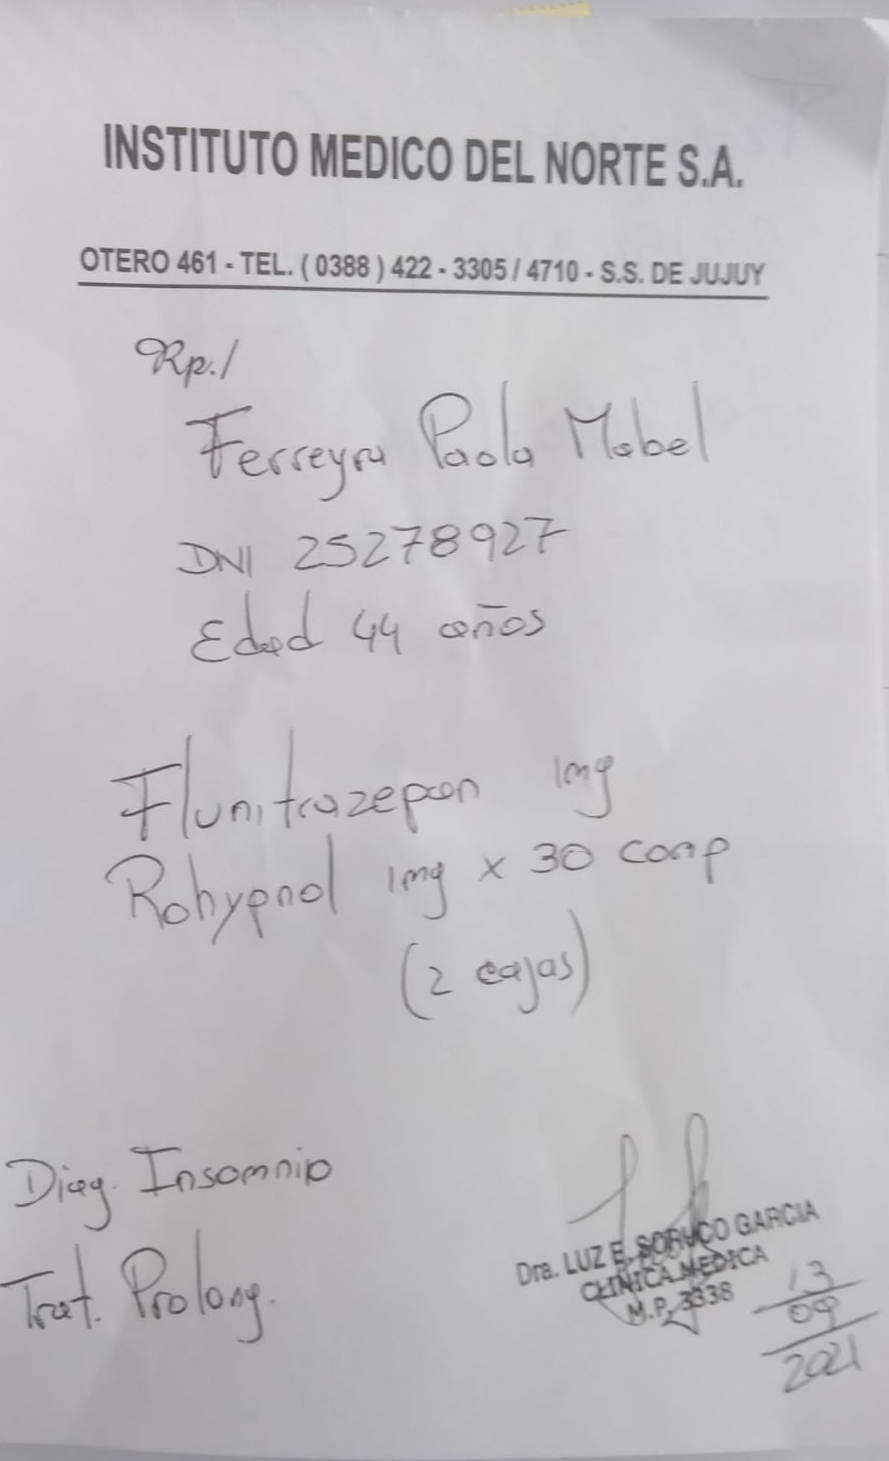 INSTITUTO MEDICO DEL NORTE S.A.
OTERO 461 - TEL. ( 0388 ) 422 - 3305 / 4710 - S.S. DE JUJUY
Rp./
Ferreyra Paola Mabel
DNI 25278927
Edad 44 años
Flunitrazepan 1mg
Rohypnol 1mg x 30 comp
(2 cajas)
Diag. Insomnio
Trat. Prolong.
Dra. LUZ E. SORUCO GARCIA
CLINICA MEDICA
M.P. 3338
13
09
2021